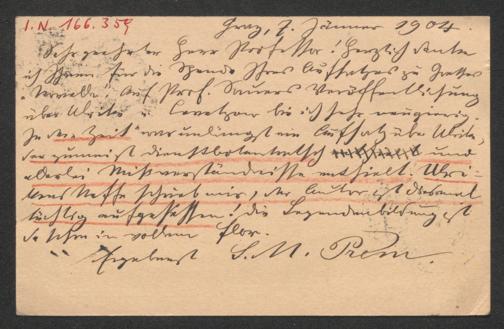 I.N. 166.359
Graz, 7. Jänner 1904.
Sehr geehrter Herr Professor! Herzlich danke
ich Ihnen für die Spende Ihres Aufsatzes zu Goethes
"Novelle". Auf Prof. Sauers Veröffentlichung
über Ulrike v. Levetzow bin ich sehr neugierig.
In der "Zeit" war unlängst ein Aufsatz über Ulrike,
der zumeist Dienstbotentratsch und
allerlei Mißverständnisse enthielt. Ulri-
kens Neffe schrieb mir, der Autor ist diesmal
tüchtig aufgesessen! Die Legendenbildung ist
da schon in vollem Flor.
Ergebenst S. M. Prem.